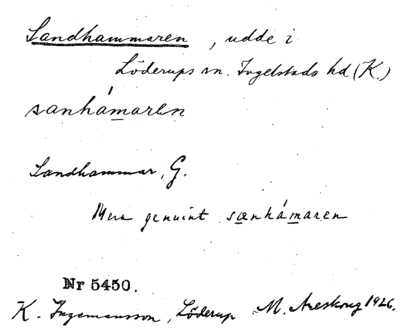 Sandhammaren, udde i
Löderups sn. Ingelstads hd (K.)
sanhámaren
Sandhammar, G.
Mera genuint sanhámaren
Nr 5450.
K. Ingemansson, Löderup M. Areskoug 1926.